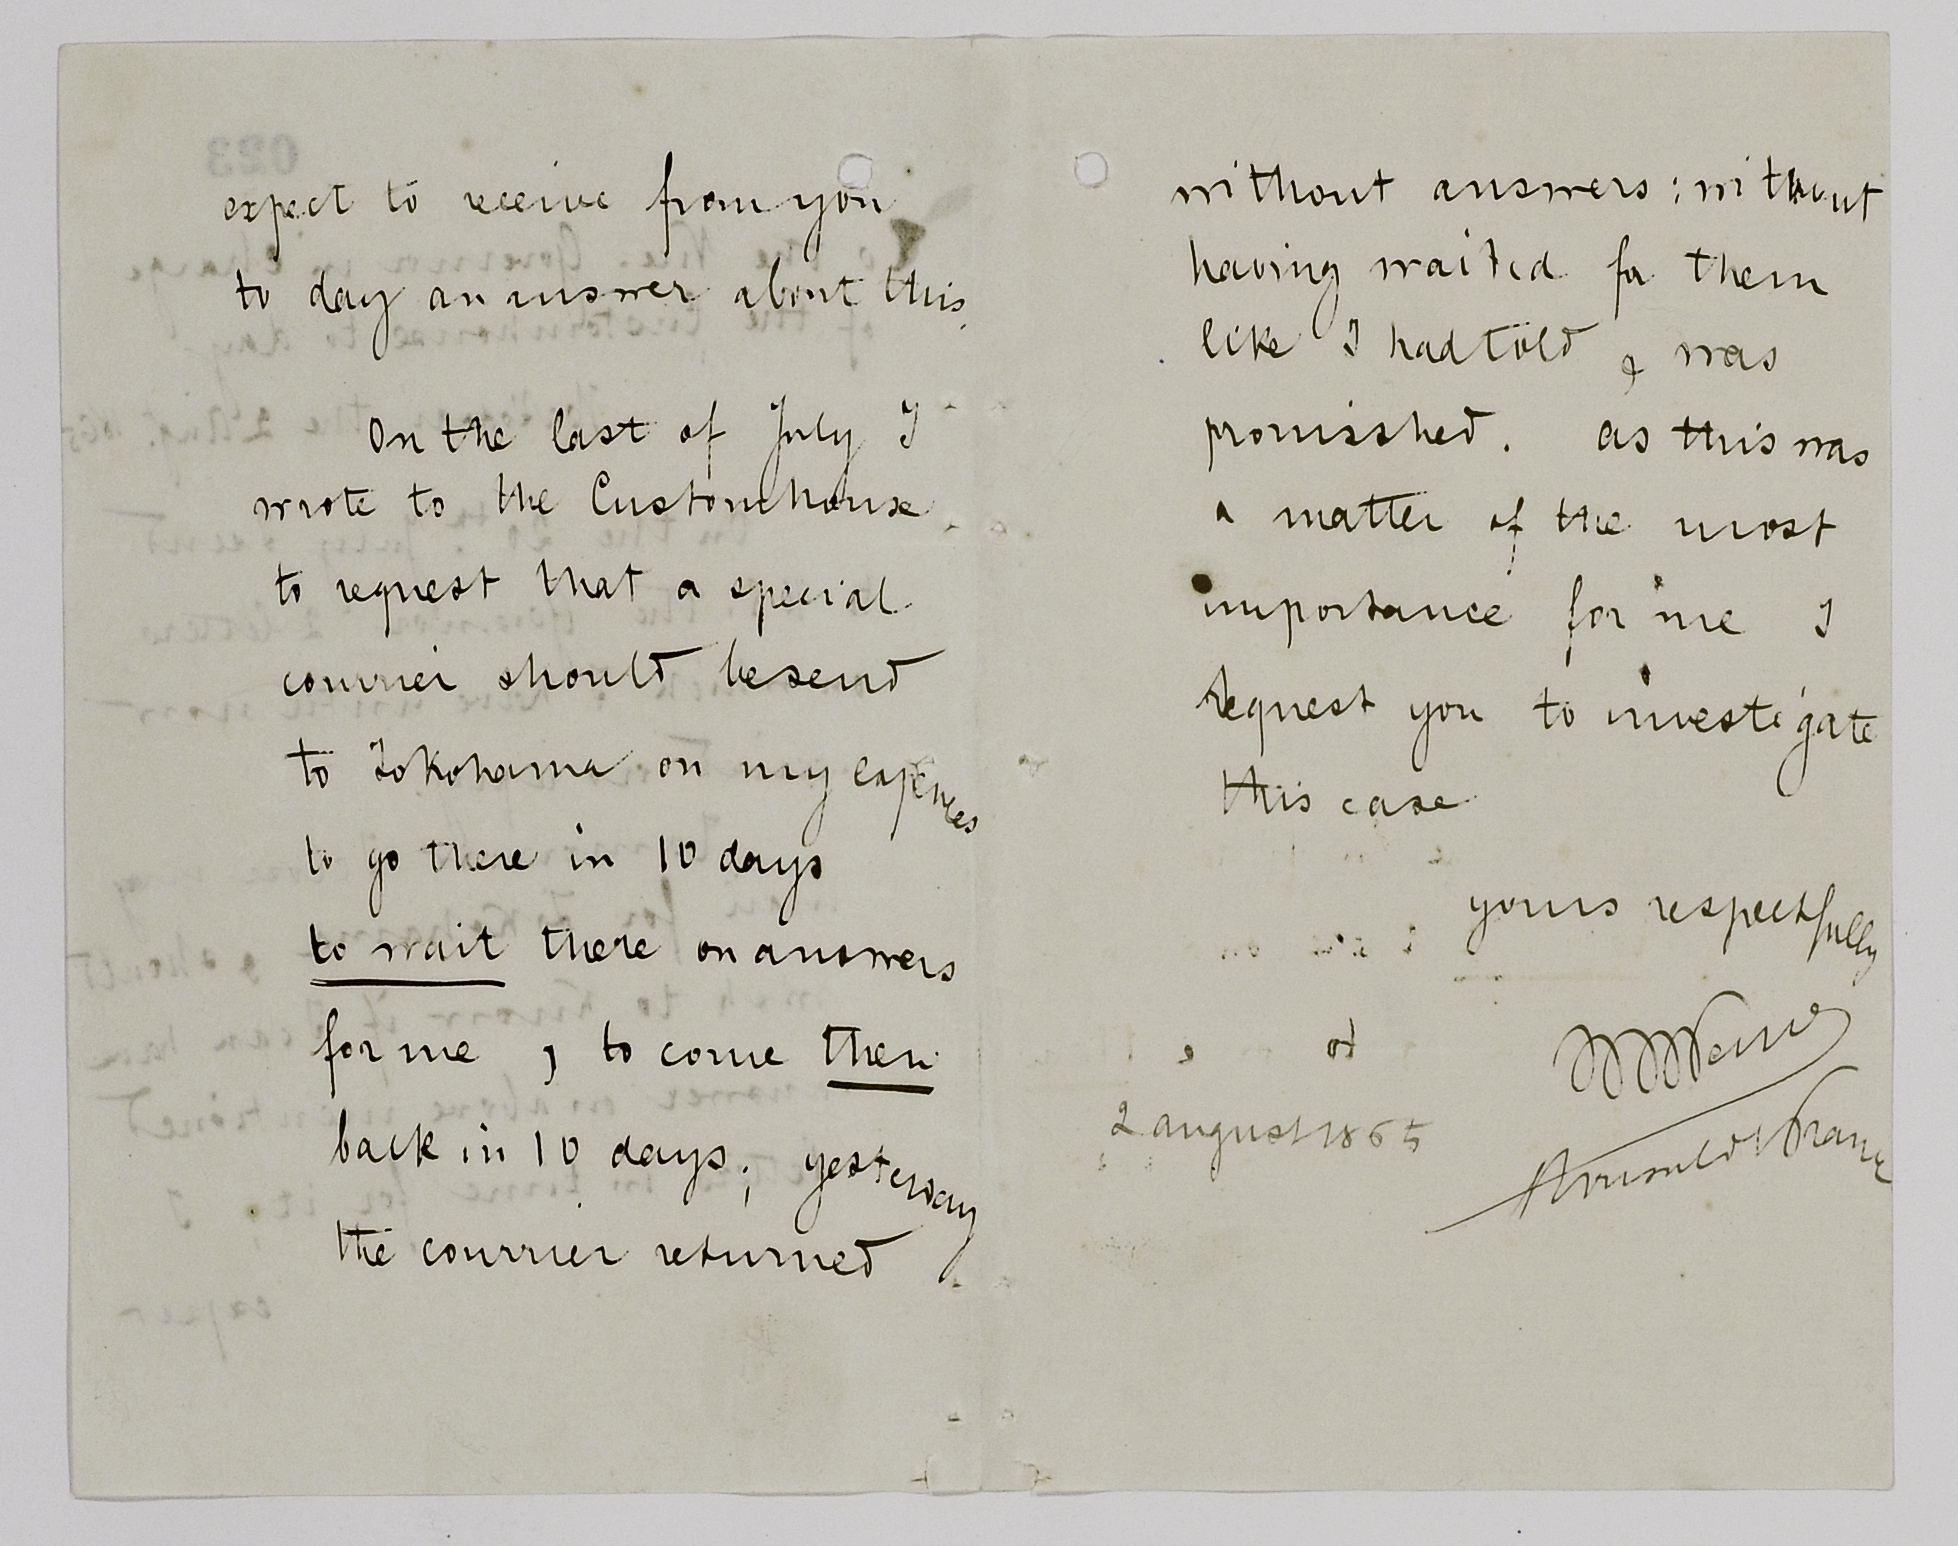 expect to receive from you
to day an answer about this.
On the last of July I
wrote to the Customhouse
to request that a special
courrier should be send
to Yokohama on my expences
to go there in 10 days
to wait there on answers
for me , to come then
back in 10 days; yesterday
the courrier returned
without answers; without
having waited for them
like I had told & was
promisshed. as this was
a matter of the most
importance for me I
request you to investigate
this case
yours respectfully
2 august 1865